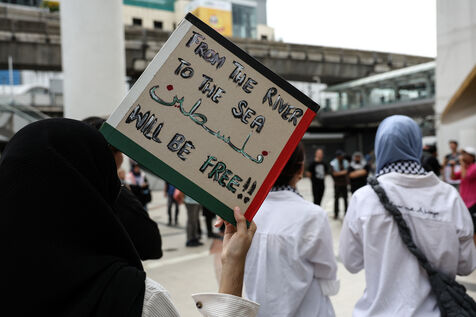 FROM THE RIVER
TO THE SEA
فلسطين
WILL BE FREE!!